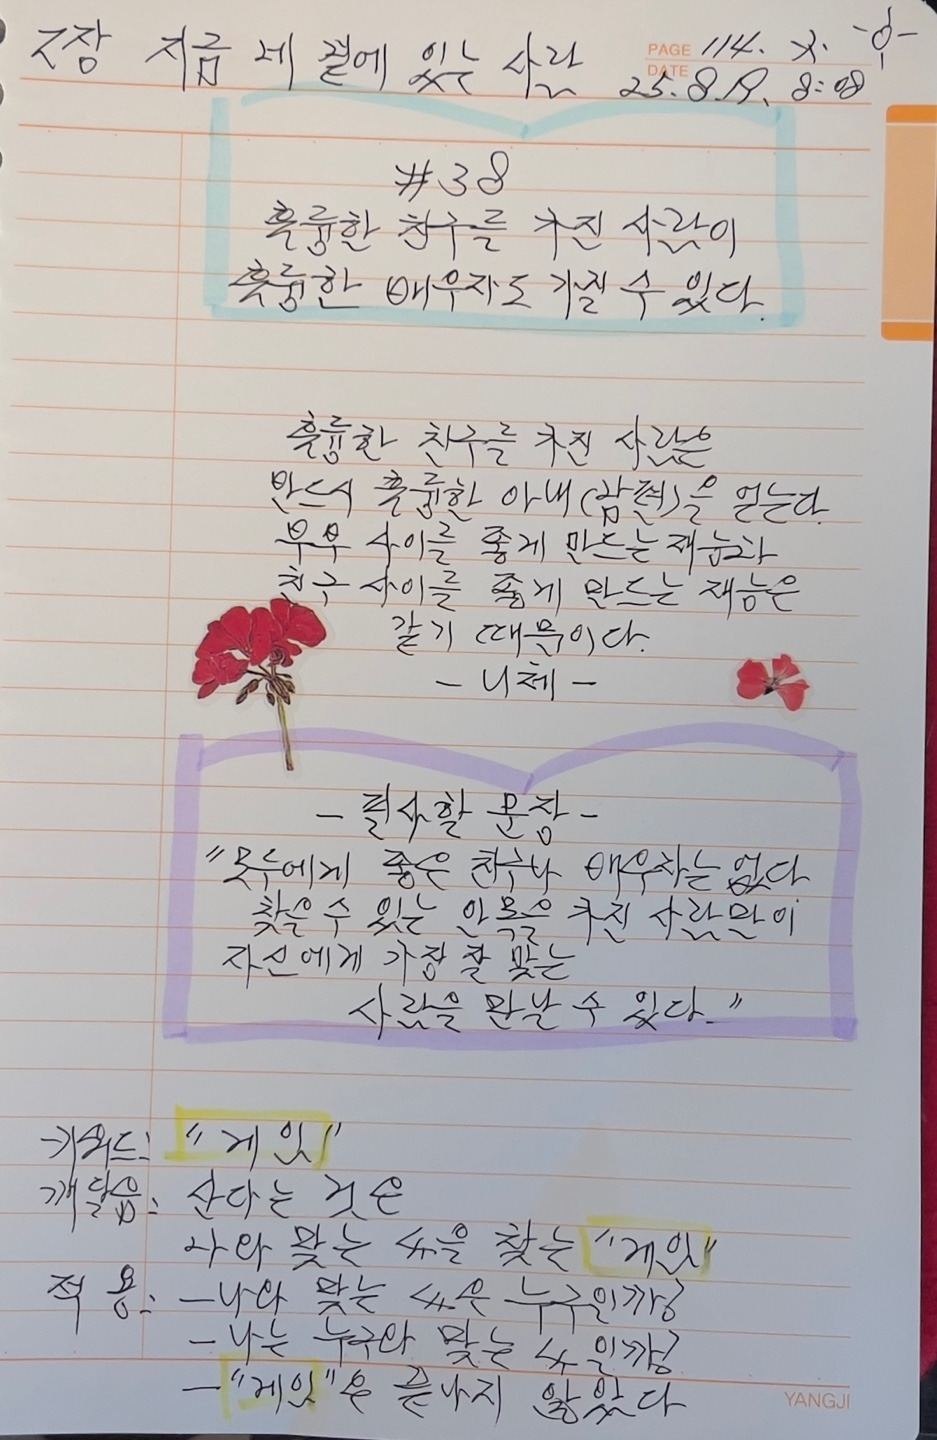 지금 네 곁에 있는 사람
PAGE 114.
DATE 25.8.19. 8:08
#38
훌륭한 친구를 가진 사람이
훌륭한 배우자도 가질 수 있다.
훌륭한 친구를 가진 사람은
반드시 훌륭한 아내(남편)을 얻는다.
부부 사이를 좋게 만드는 재능과
친구 사이를 좋게 만드는 재능은
같기 때문이다.
- 니체 -
- 필사할 문장 -
"모두에게 좋은 친구나 배우자는 없다
찾을 수 있는 안목을 가진 사람만이
자신에게 가장 잘 맞는
사람을 만날 수 있다."
키워드: "게임"
깨달음: 산다는 것은
나와 맞는 을 찾는 "게임"
적용: - 나와 맞는 은 누구인가?
- 나는 누구와 맞는 인가?
- "게임"은 끝나지 않았다
YANGJI